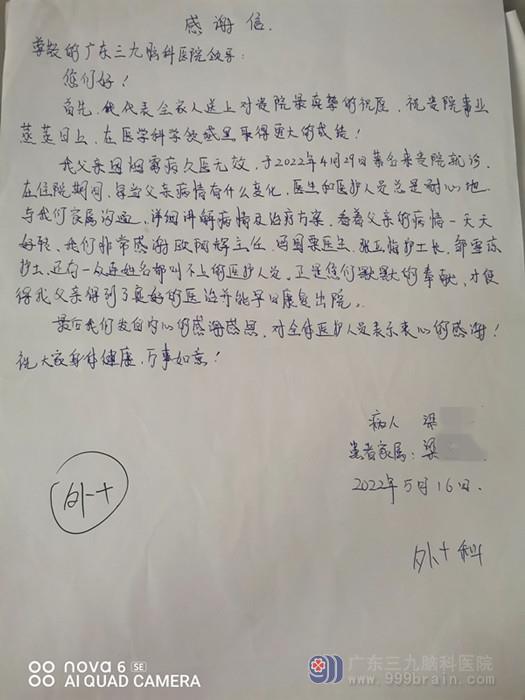 感谢信.
尊敬的广东三九脑科医院领导:
您们好!
首先,我代表全家人送上对贵院最真挚的祝愿,祝贵院事业
蒸蒸日上,在医学科学领域里取得更大的成绩!
我父亲因烟雾病久医无效,于2022年4月29日慕名来贵院就诊,
在住院期间,每当父亲病情有什么变化,医生和医护人员总是耐心地
与我们家属沟通,详细讲解病情及治疗方案,看着父亲的病情一天天
好转,我们非常感谢欧阳辉主任,医生,护士长,邹雪
护士,还有一众连姓名都叫不上的医护人员,正是您们默默的奉献,才使
得我父亲得到了良好的医治并能早日康复出院。
最后我们发自内心的感谢感恩,对全体医护人员表示衷心的感谢!
祝大家身体健康,万事如意!
病人 梁
患者家属:梁
2022年5月16日.
外十
外十科
nova 6 SE
AI QUAD CAMERA
广东三九脑科医院
www.999brain.com